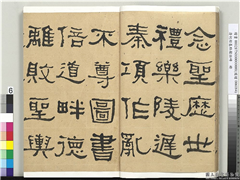 念聖歷世
禮樂陵遲
秦項作亂
不尊圖書
倍道畔德
離敗聖輿
6